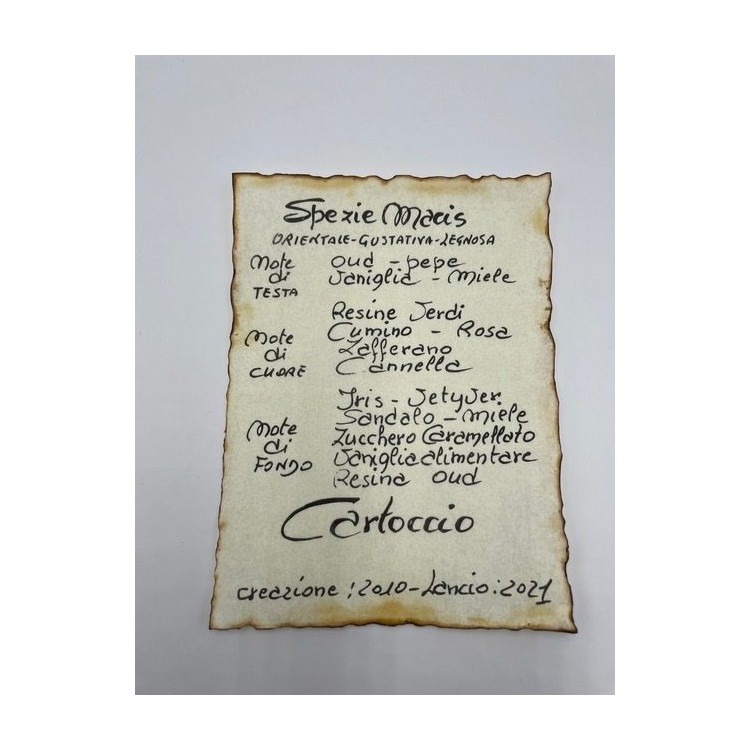 Spezie Macis
ORIENTALE-GUSTATIVA-LEGNOSA
Note di TESTA
oud - pepe
Vaniglia - Miele
Note di CUORE
Resine Verdi
Cumino - Rosa
Zafferano
Cannella
Note di FONDO
Iris - Vetyver
Sandalo - Miele
Zucchero Caramellato
Vaniglia alimentare
Resina oud
Cartoccio
creazione: 2010 - Lancio: 2021